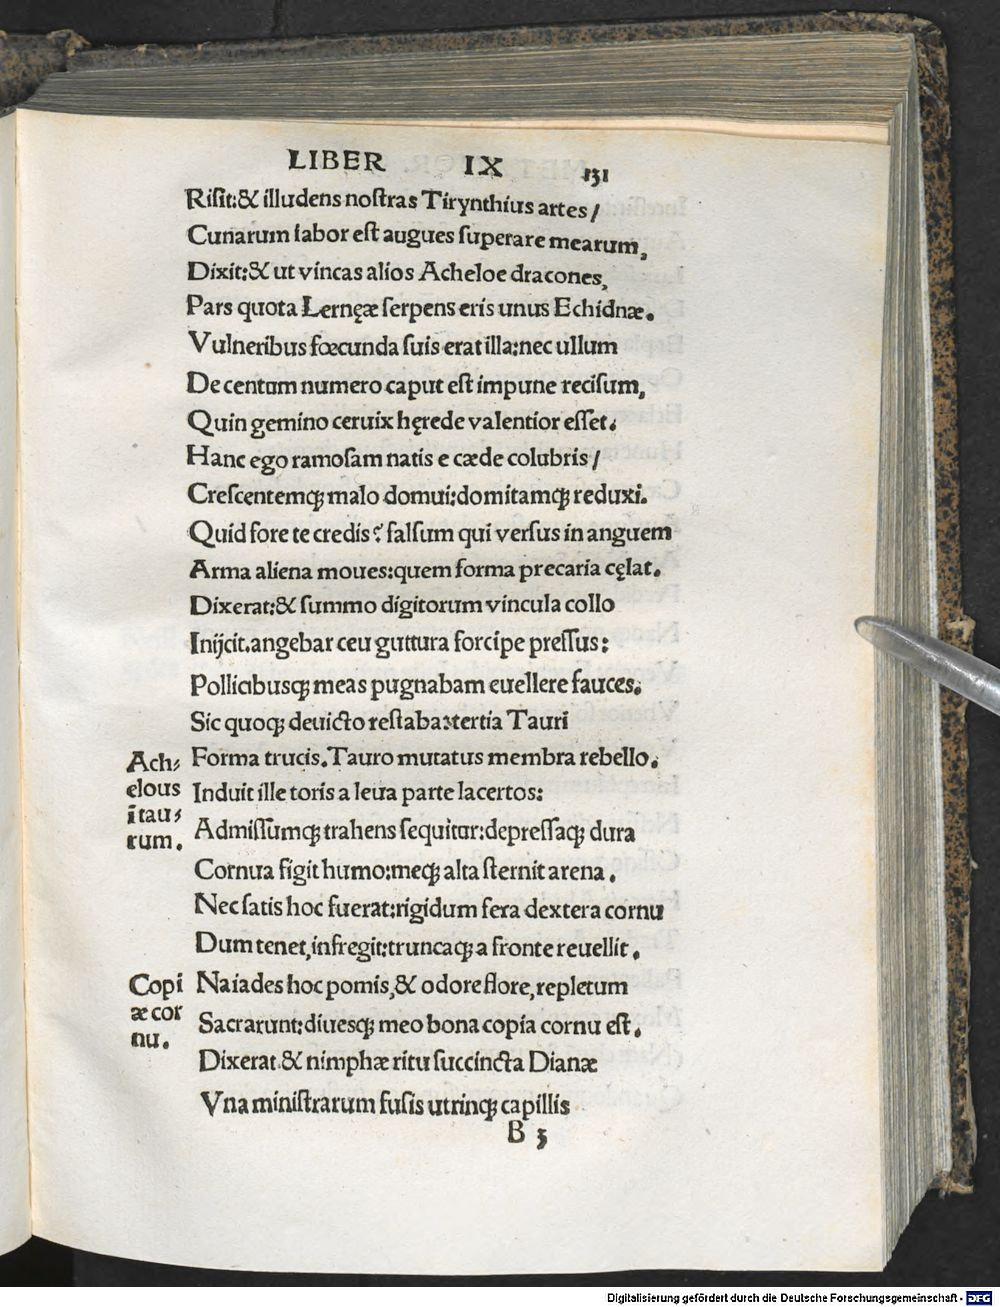 LIBER IX 131
Risit:& illudens nostras Tirynthius artes/
Cunarum labor est augues superare mearum,
Dixit:& ut vincas alios Acheloe dracones,
Pars quota Lernęæ serpens eris unus Echidnæ.
Vulneribus fœcunda suis erat illa:nec ullum
De centum numero caput est impune recisum,
Quin gemino ceruix hęrede valentior esset.
Hanc ego ramosam natis e cæde colubris/
Crescentemq; malo domui:domitamq; reduxi.
Quid fore te credis? falsum qui versus in anguem
Arma aliena moues:quem forma precaria cęlat.
Dixerat:& summo digitorum vincula collo
Inijcit.angebar ceu guttura forcipe pressus:
Pollicibusq; meas pugnabam euellere fauces.
Sic quoq; deuicto restaba:tertia Tauri
Forma trucis.Tauro mutatus membra rebello.
Induit ille toris a leua parte lacertos:
Admissumq; trahens sequitur:depressaq; dura
Cornua figit humo:meq; alta sternit arena.
Nec satis hoc fuerat:rigidum fera dextera cornu
Dum tenet,infregit:truncaq; a fronte reuellit.
Naiades hoc pomis,& odore flore,repletum
Sacrarunt:diuesq; meo bona copia cornu est.
Dixerat.& nimphæ ritu succincta Dianæ
Vna ministrarum fusis utrinq; capillis
B 3
Ach⸗
elous
ĩ tau⸗
rum.
Copi
æ cor
nu.
Digitalisierung gefördert durch die Deutsche Forschungsgemeinschaft - DFG